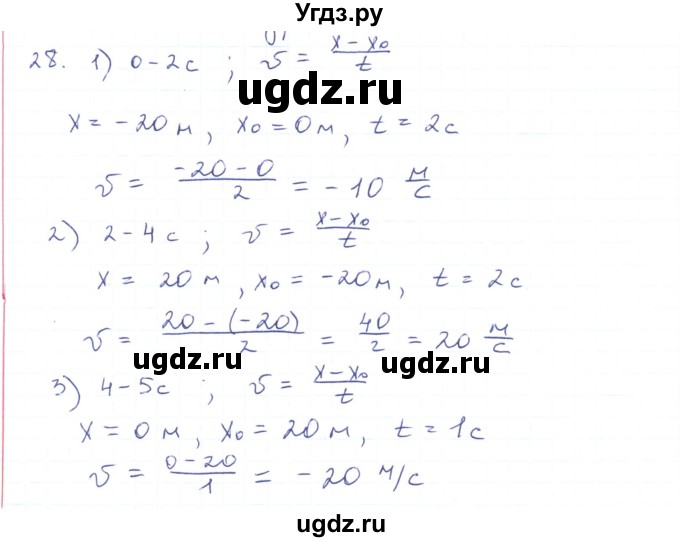 Угдз.ру
28. 1) 0-2с ; v = (x-x₀)/t
x = -20 м, x₀ = 0м, t = 2с
ugdz.ru
ugdz.ru
v = (-20-0)/2 = -10 м/с
2) 2-4 с ; v = (x-x₀)/t
x = 20 м, x₀ = -20м, t = 2с
v = (20-(-20))/2 = 40/2 = 20 м/с
ugdz.ru
ugdz.ru
3) 4-5с ; v = (x-x₀)/t
x = 0 м, x₀ = 20 м, t = 1с
v = (0-20)/1 = -20 м/с
ugdz.ru